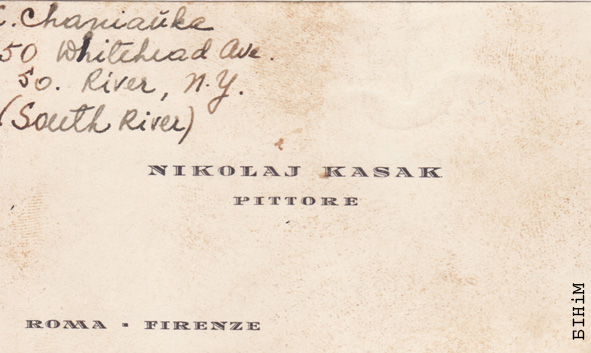 . Chaniaŭka
50 Whitehead Ave.
So. River, N.Y.
(South River)
NIKOLAJ KASAK
PITTORE
ROMA - FIRENZE
БІНіМ